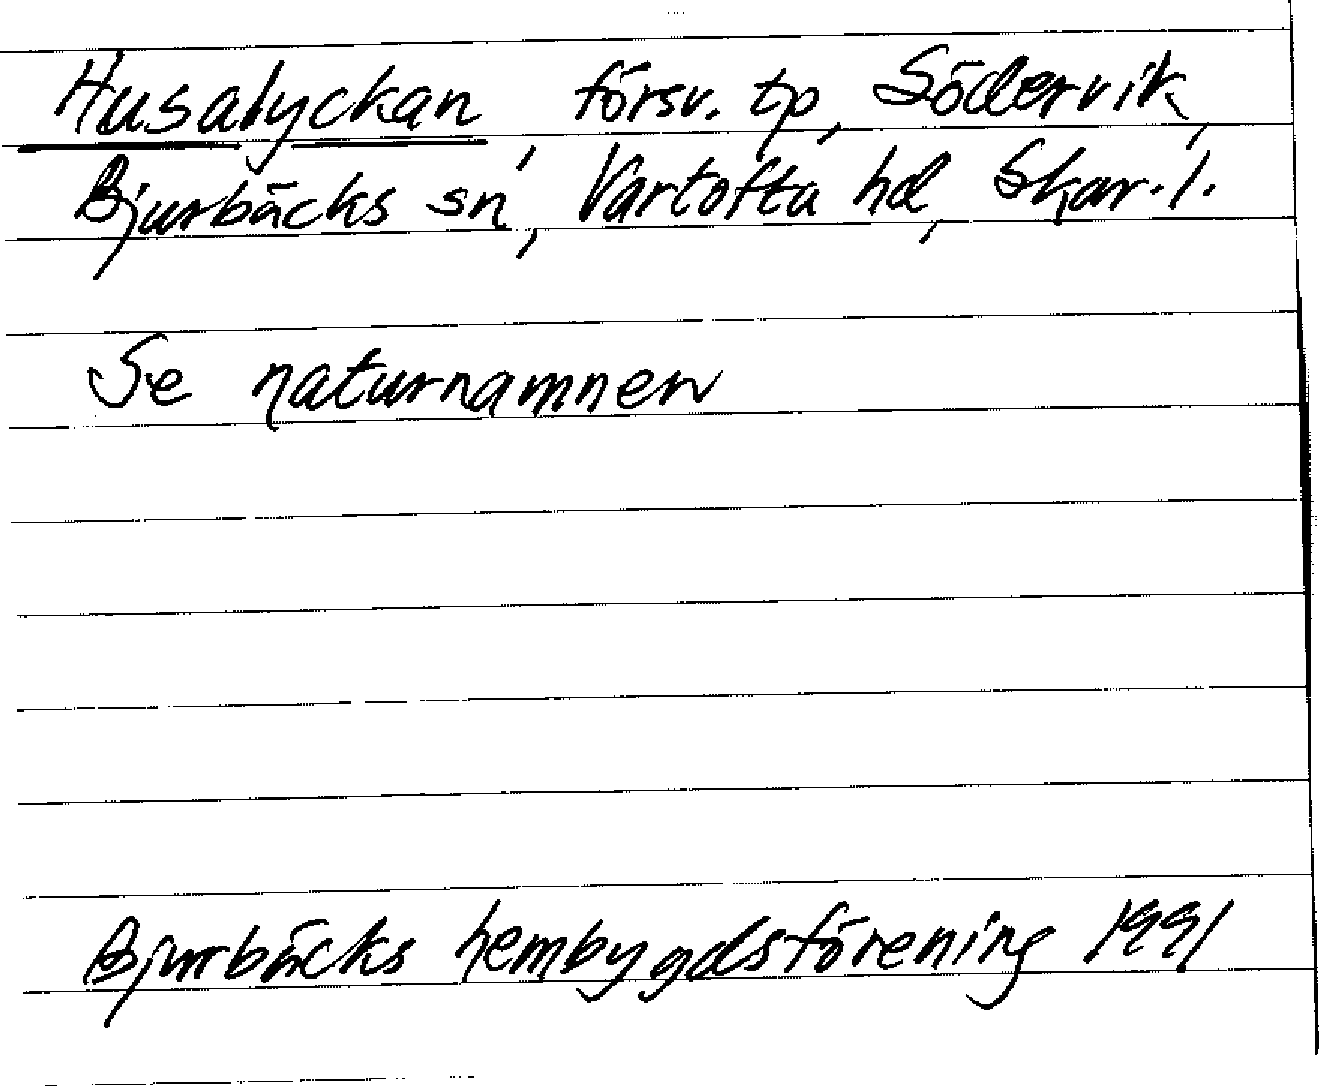 Husalyckan, försv. tp, Södervik,
Bjurbäcks sn, Vartofta hd, Skar. l.
Se naturnamnen
Bjurbäcks hembygdsförening 1991